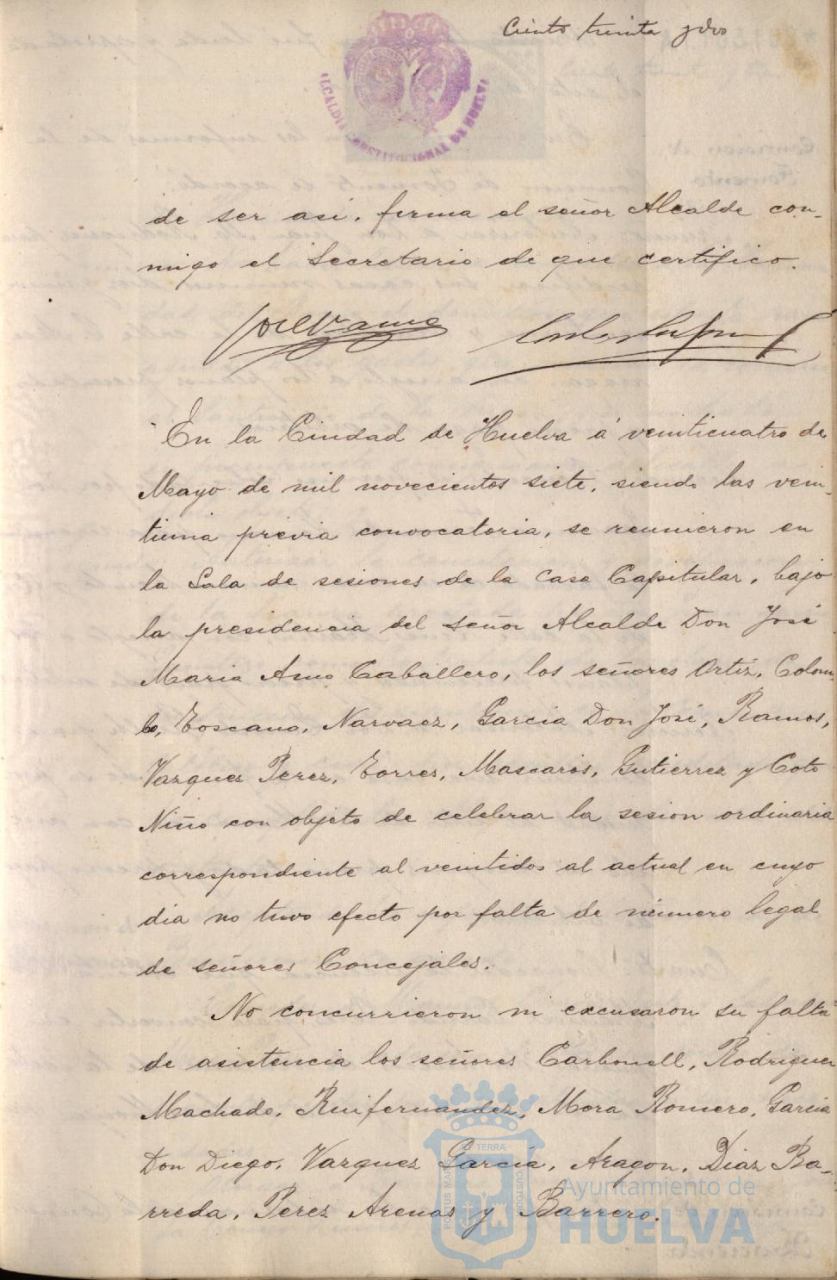 Ciento treinta y dos
ALCALDIA CONSTITUCIONAL DE HUELVA
de ser asi, firma el señor Alcalde con-
migo el Secretario de que certifico.
En la Ciudad de Huelva á veinticuatro de
Mayo de mil novecientos siete, siendo las vein-
tiuna previa convocatoria, se reunieron en
la Sala de sesiones de la Casa Capitular, bajo
la presidencia del señor Alcalde Don José
Maria Amo Caballero, los señores Ortiz, Colom-
bo, Toscano, Narvaez, Garcia Don José, Ramos,
Vazquez Perez, Torres, Mascarós, Gutierrez y Coto
Niño con objeto de celebrar la sesion ordinaria
correspondiente al veintidos al actual en cuyo
dia no tuvo efecto por falta de número legal
de señores Concejales.
No concurrieron ni excusaron su falta
de asistencia los señores Carbonell, Rodriguez
Machado, Ruifernandez, Mora Romero, Garcia
Don Diego, Vazquez Garcia, Aragon, Diaz Ba-
rreda, Perez Arenas y Barrero.
Ayuntamiento de
HUELVA